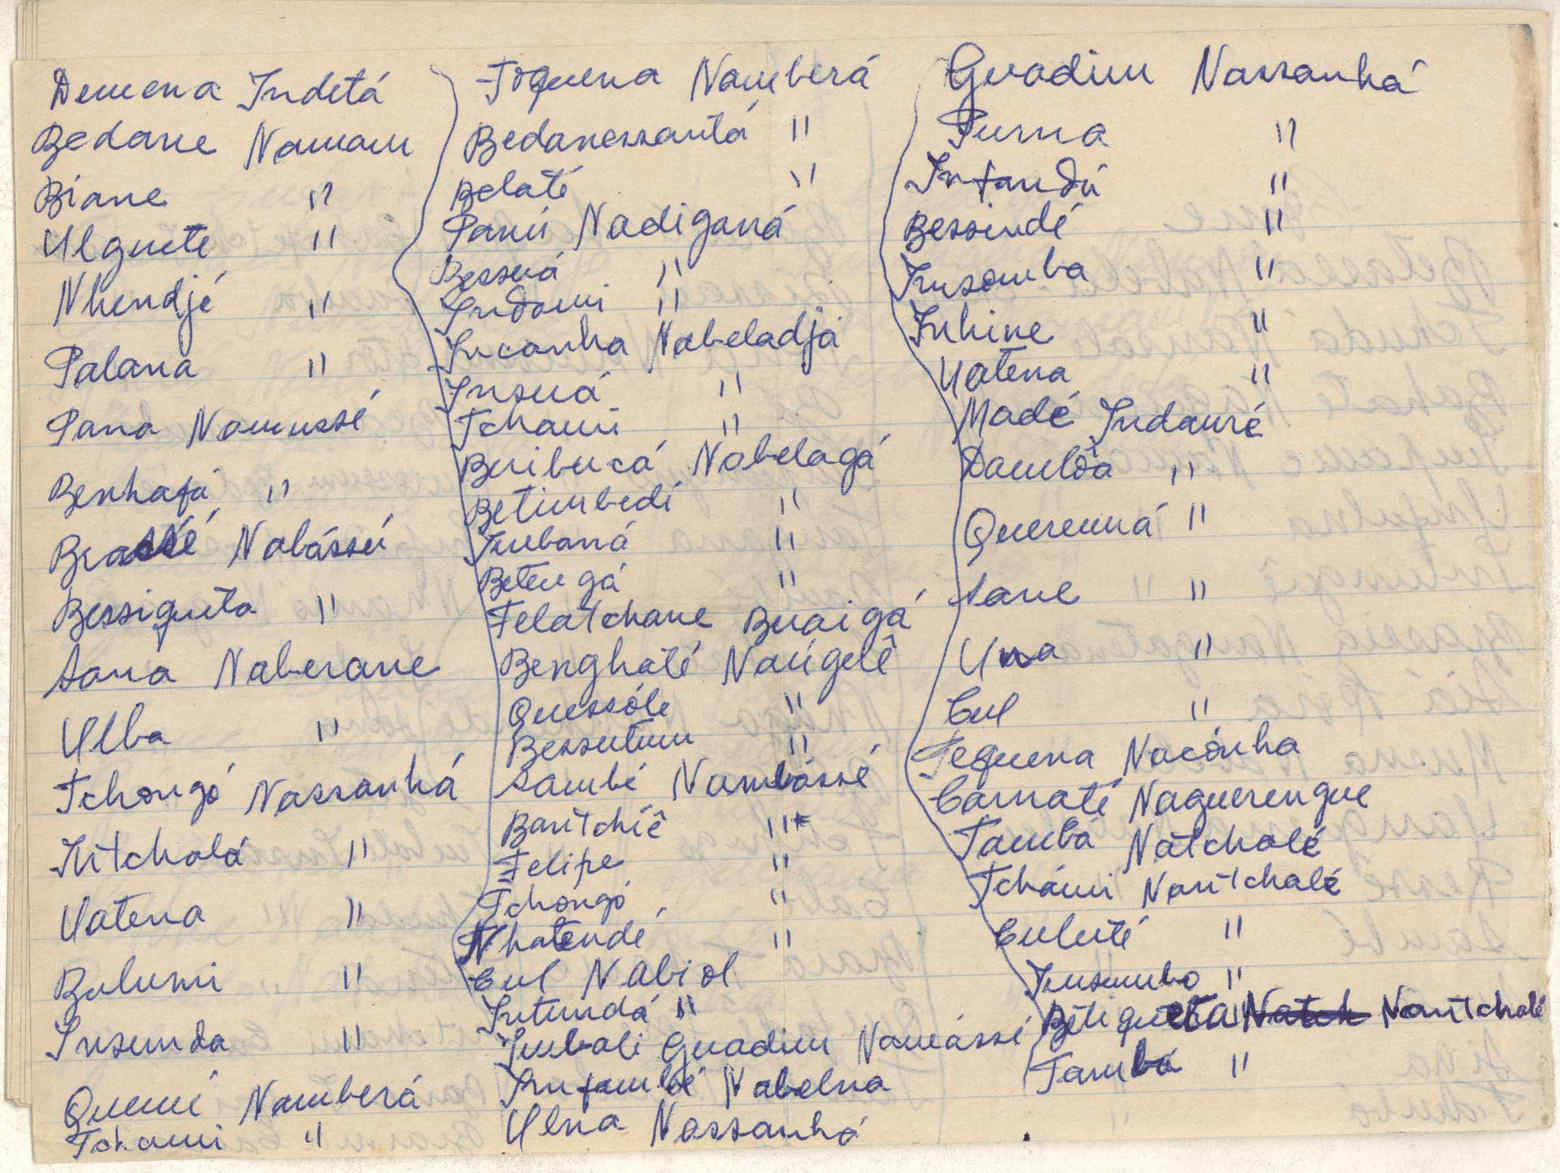 Demena Indetá
Bedane Namam
Biane "
Ulguete "
Nhendjé "
Palana "
Pana Namussé
Benhafá "
Nabássú
Bessigueta "
Sana Naberane
Ulba "
Tchongó Nassanhá
Intcholá "
Uatena "
Bulumi "
Insunda "
Quemú Namberá
Tchami "
Toquena Namberá
Bedanessantá "
Belaté "
Panú Nadiganá
Bessuá "
Indami "
Incanha Nabeladjá
Insuá "
Tchami "
Beribucá Nabelagá
Betimbedi "
Imbaná "
Betengá "
Felatchane Buaigá
Benghaté Naúgelê
Quessóle "
Bessutum "
Sambé Nambássé
Baritchiê "
Felipe "
Tchongó "
Nhatendé "
Cul Nabiol
Intundá "
Imbali Guadim Namássé
Infambé Nabelna
Ulna Nassanhá
Guadim Nassanhá
Purna "
Infandú "
Bessundé "
Insomba "
Inhine "
Uatena "
Madé Indauré
Dambôa "
Queremná "
Sane "
Una "
Cul "
Tequena Nacónha
Camaté Naguerengue
Tamba Natchalé
Tchámi Nantchalé
Culuté "
Insumbo "
Nantchalé
Tamba "